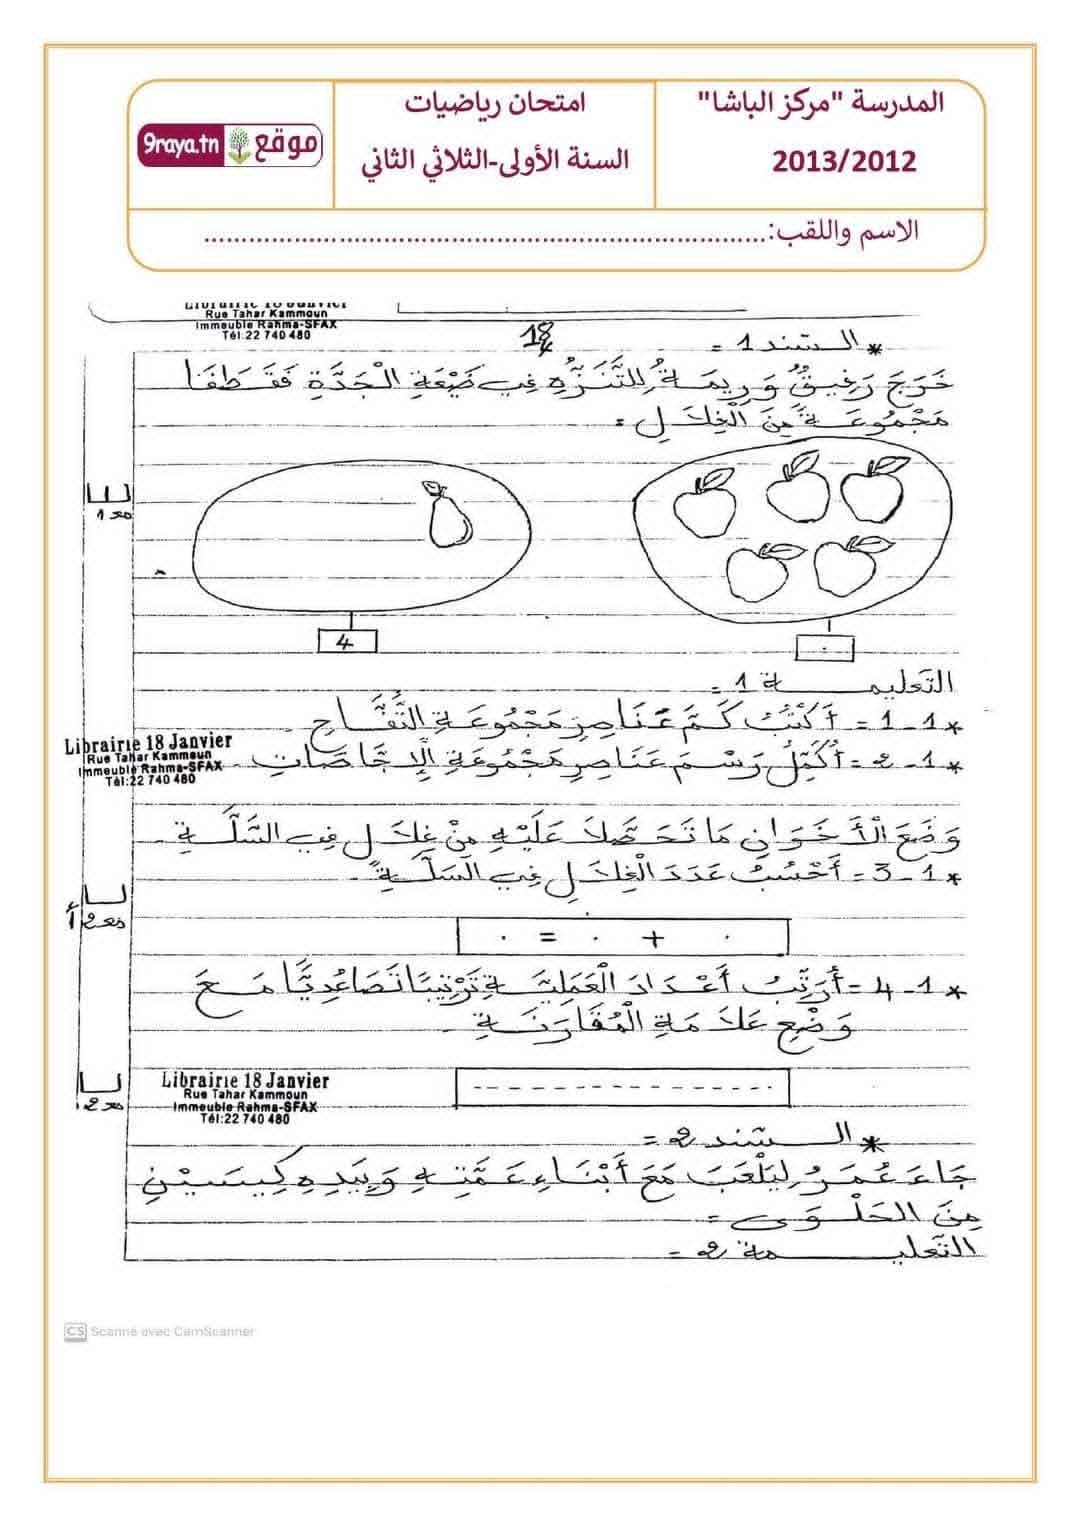 المدرسة "مركز الباشا"
2013/2012
امتحان رياضيات
السنة الأولى-الثلاثي الثاني
موقع 9raya.tn
الاسم واللقب:..........................................................................
Librairie 18 Janvier
Rue Tahar Kammoun
Immeuble Rahma-SFAX
Tél:22 740 480
* السّند 1 =
خَرَجَ رَفِيقٌ وَرِيمَةُ لِلتَّنَزُّهِ فِي ضَيْعَةِ الْجَدَّةِ فَقَطَفَا
مَجْمُوعَةً مِنَ الْغِلَالِ =
مع 1
4
التّعليمة 1 =
* 1-1 = أَكْتُبُ كَمَّ عَنَاصِرِ مَجْمُوعَةِ التُّفَّاحِ.
* 1-2 = أُكَمِّلُ رَسْمَ عَنَاصِرِ مَجْمُوعَةِ الْإِجَّاصَاتِ.
Librairie 18 Janvier
Rue Tahar Kammoun
Immeuble Rahma-SFAX
Tél:22 740 480
وَضَعَ الْأَخَوَانِ مَا تَحَصَّلَا عَلَيْهِ مِنْ غِلَالٍ فِي السَّلَّةِ.
* 1-3 = أَحْسُبُ عَدَدَ الْغِلَالِ فِي السَّلَّةِ.
مع 2 أ
. + . = .
* 1-4 = أُرَتِّبُ أَعْدَادَ الْعَمَلِيَّةِ تَرْتِيبًا تَصَاعُدِيًّا مَعَ
وَضْعِ عَلَامَةِ الْمُقَارَنَةِ.
مع 2
Librairie 18 Janvier
Rue Tahar Kammoun
Immeuble Rahma-SFAX
Tél:22 740 480
* السّند 2 =
جَاءَ عُمَرُ لِيَلْعَبَ مَعَ أَبْنَاءِ عَمَّتِهِ وَبِيَدِهِ كِيسَيْنِ
مِنَ الحَلْوَى =
التّعليمة 2 =
CS Scanné avec CamScanner